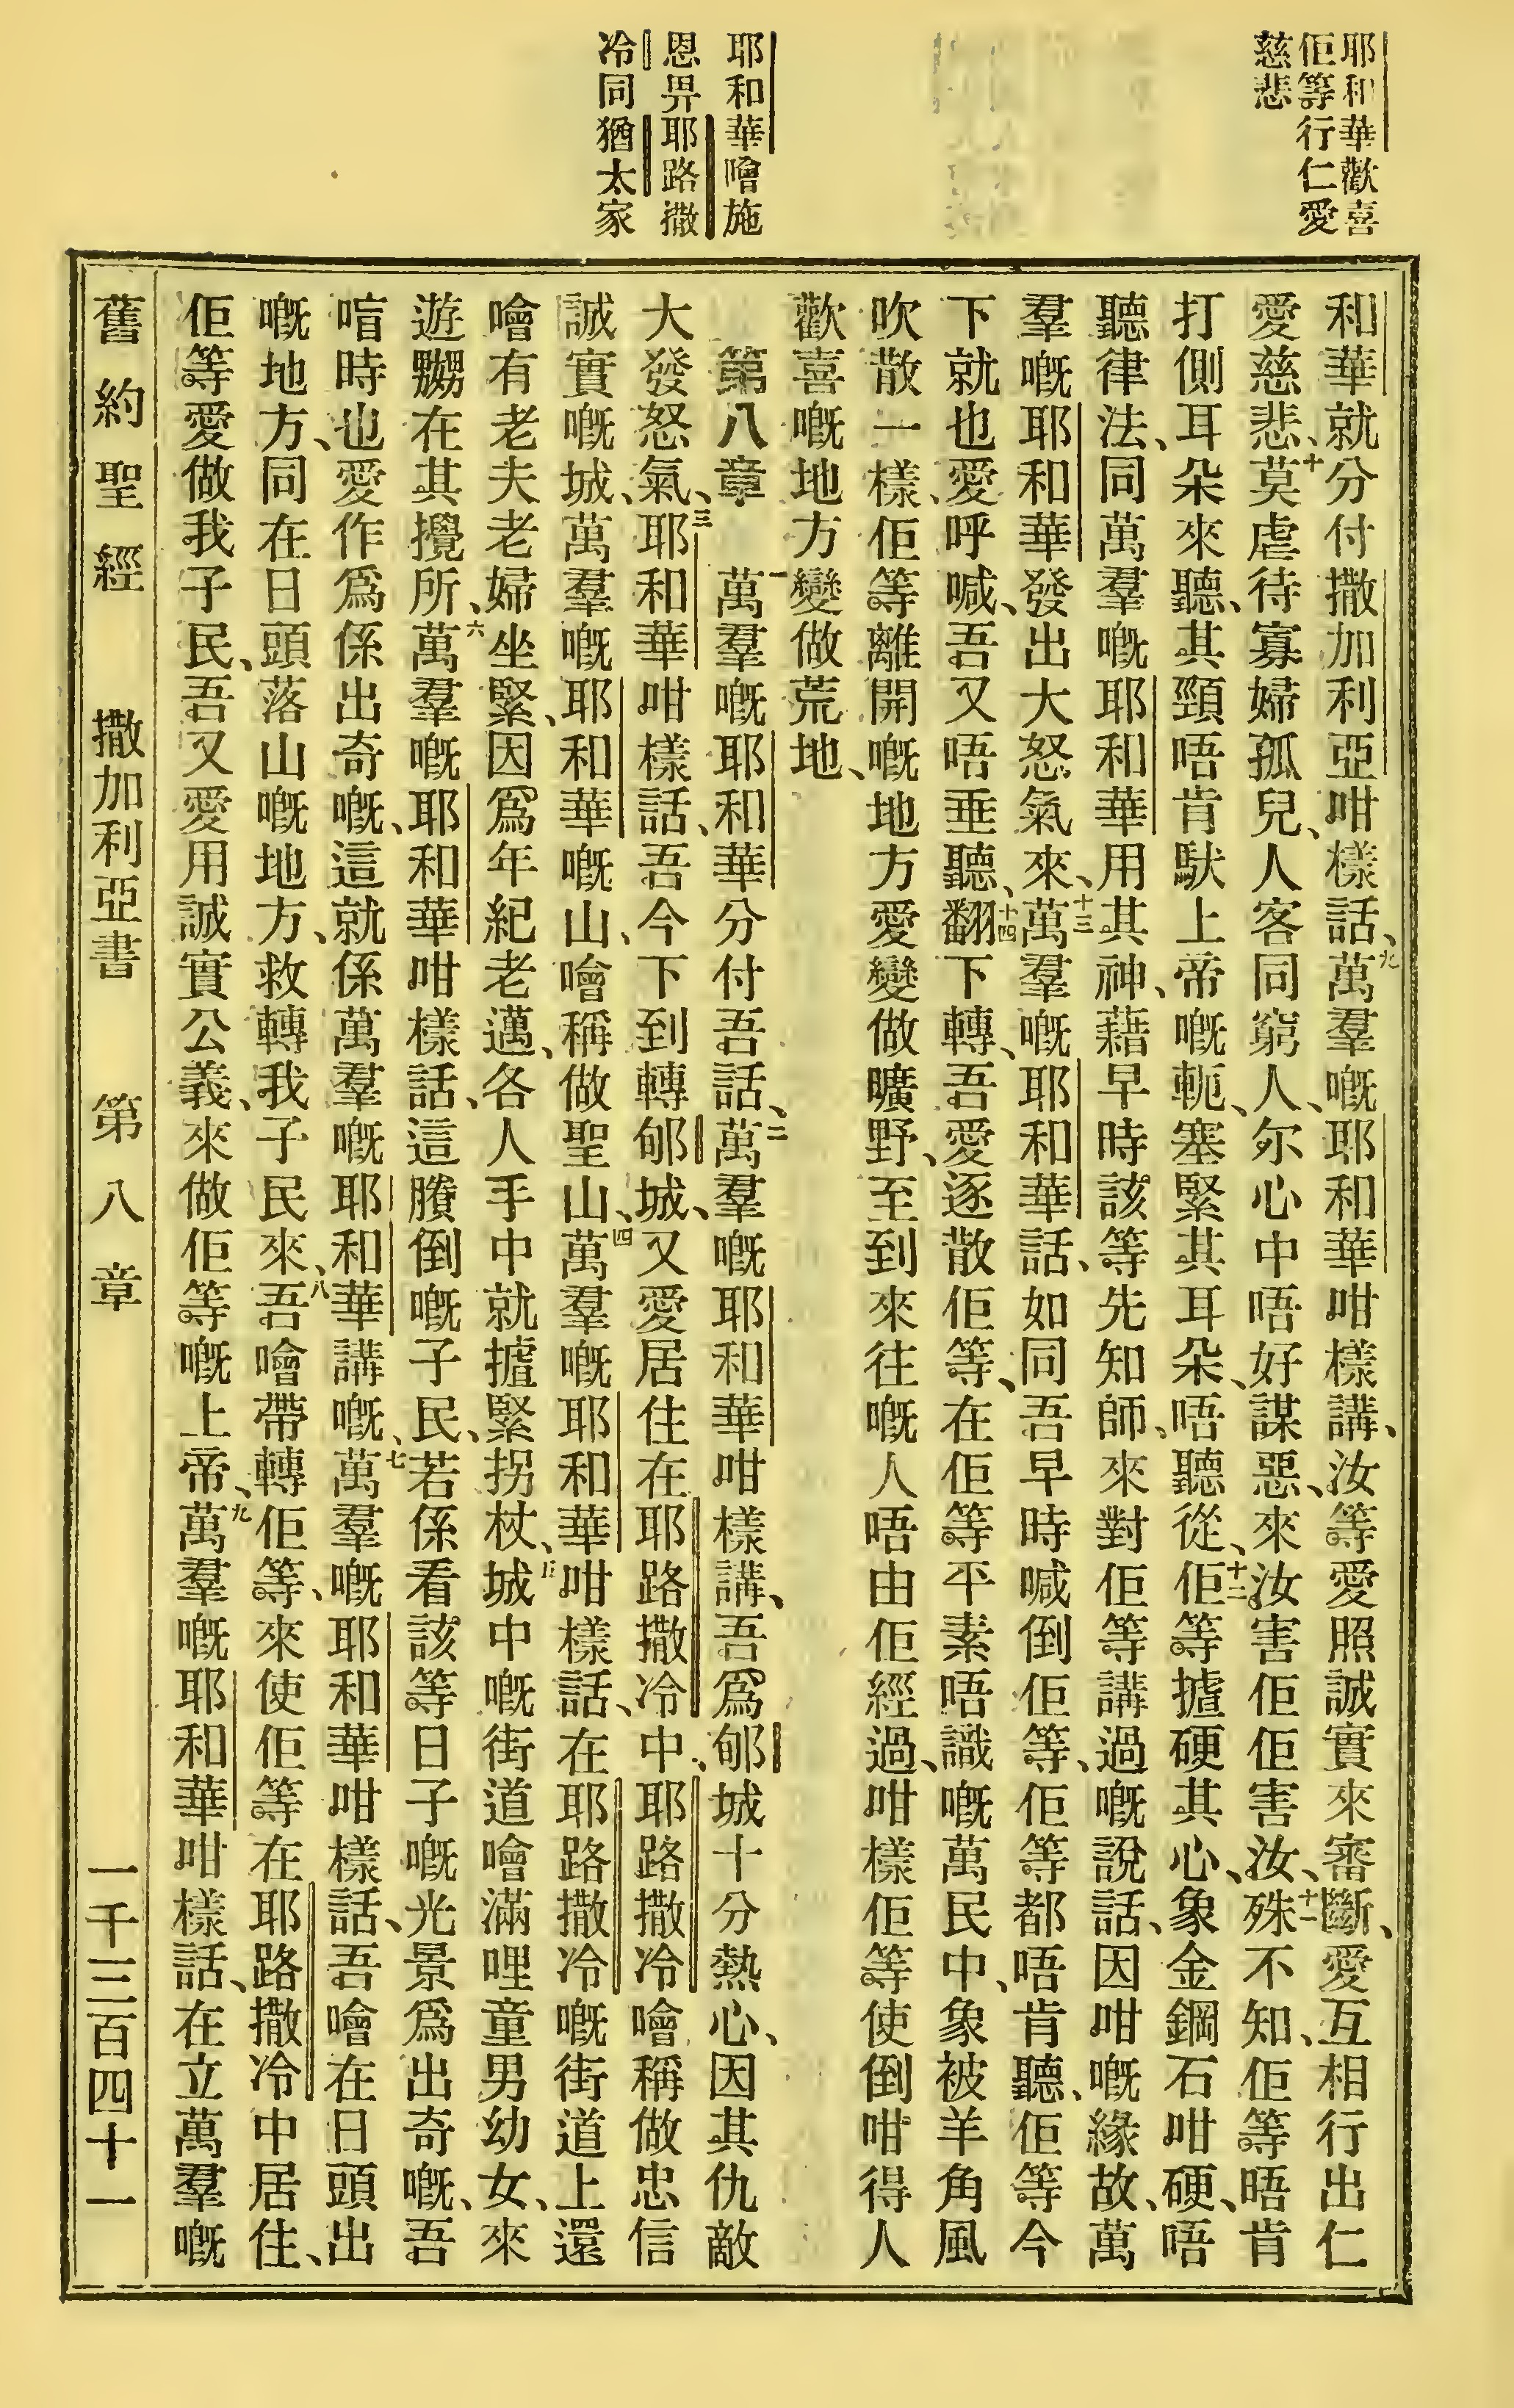 耶和華歡喜
佢等行仁愛
慈悲
耶和華噲施
恩畀耶路撒
冷同猶太家
和華就分付撒加利亞咁樣話、九萬羣嘅耶和華咁樣講、汝等愛照誠實來審斷、愛互相行出仁
愛慈悲、十莫虐待寡婦孤兒、人客同窮人、尔心中唔好謀惡、來汝害佢佢害汝、十一殊不知、佢等唔肯
打側耳朵來聽、其頸唔肯䭾上帝嘅軛、塞緊其耳朵、唔聽從、十二佢等摣硬其心、象金鋼石咁硬、唔
聽律法、同萬羣嘅耶和華用其神、藉早時該等先知師、來對佢等講過嘅說話、因咁嘅緣故、萬
羣嘅耶和華發出大怒氣來、十三萬羣嘅耶和華話、如同吾早時喊倒佢等、佢等都唔肯聽、佢等今
下就也愛呼喊、吾又唔垂聽、十四翻下轉、吾愛逐散佢等、在佢等平素唔識嘅萬民中、象被羊角風
吹散一樣、佢等離開嘅地方愛變做曠野、至到來往嘅人唔由佢經過、咁樣佢等使倒咁得人
歡喜嘅地方變做荒地、
第八章 一萬羣嘅耶和華分付吾話、二萬羣嘅耶和華咁樣講、吾爲郇城十分熱心、因其仇敵
大發怒氣、三耶和華咁樣話、吾今下到轉郇城、又愛居住在耶路撒冷中、耶路撒冷噲稱做忠信
誠實嘅城、萬羣嘅耶和華嘅山、噲稱做聖山、四萬羣嘅耶和華咁樣話、在耶路撒冷嘅街道上還
噲有老夫老婦坐緊、因爲年紀老邁、各人手中就摣緊拐杖、五城中嘅街道噲滿哩童男幼女、來
遊嬲在其攪所、六萬羣嘅耶和華咁樣話、這賸倒嘅子民、若係看該等日子嘅光景爲出奇嘅、吾
㫘時也愛作爲係出奇嘅、這就係萬羣嘅耶和華講嘅、七萬羣嘅耶和華咁樣話、吾噲在日頭出
嘅地方、同在日頭落山嘅地方、救轉我子民來、八吾噲帶轉佢等、來使佢等在耶路撒冷中居住、
佢等愛做我子民、吾又愛用誠實公義、來做佢等嘅上帝、九萬羣嘅耶和華咁樣話、在立萬羣嘅
舊約聖經 撒加利亞書 第八章 一千三百四十一